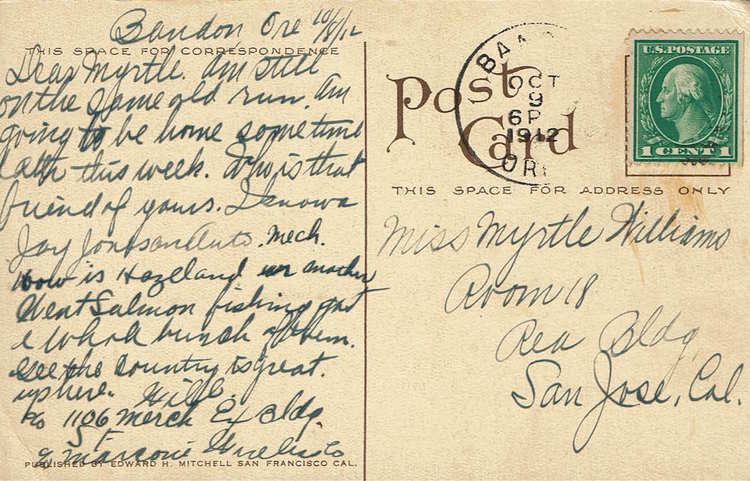 Bandon Ore 10/8/12
THIS SPACE FOR CORRESPONDENCE
Dear Myrtle. Am still
on the same old run. Am
going to be home sometime
latter this week. Who is that
friend of yours. I know a
Jay Jonson an Auto. Mech.
how is Hazel and ur mother
Went Salmon fishing got
a whole bunch of them.
Gee the country is great.
up here.
c/o 1106 Merch Ex Bldg
% Marconi Wireless Co
PUBLISHED BY EDWARD H. MITCHELL SAN FRANCISCO CAL.
Post
Card
BAN
OCT
9
6P
1912
ORE
U.S. POSTAGE
1 CENT 1
THIS SPACE FOR ADDRESS ONLY
Miss Myrtle Williams
Room 18
Rea Bldg,
San Jose, Cal.